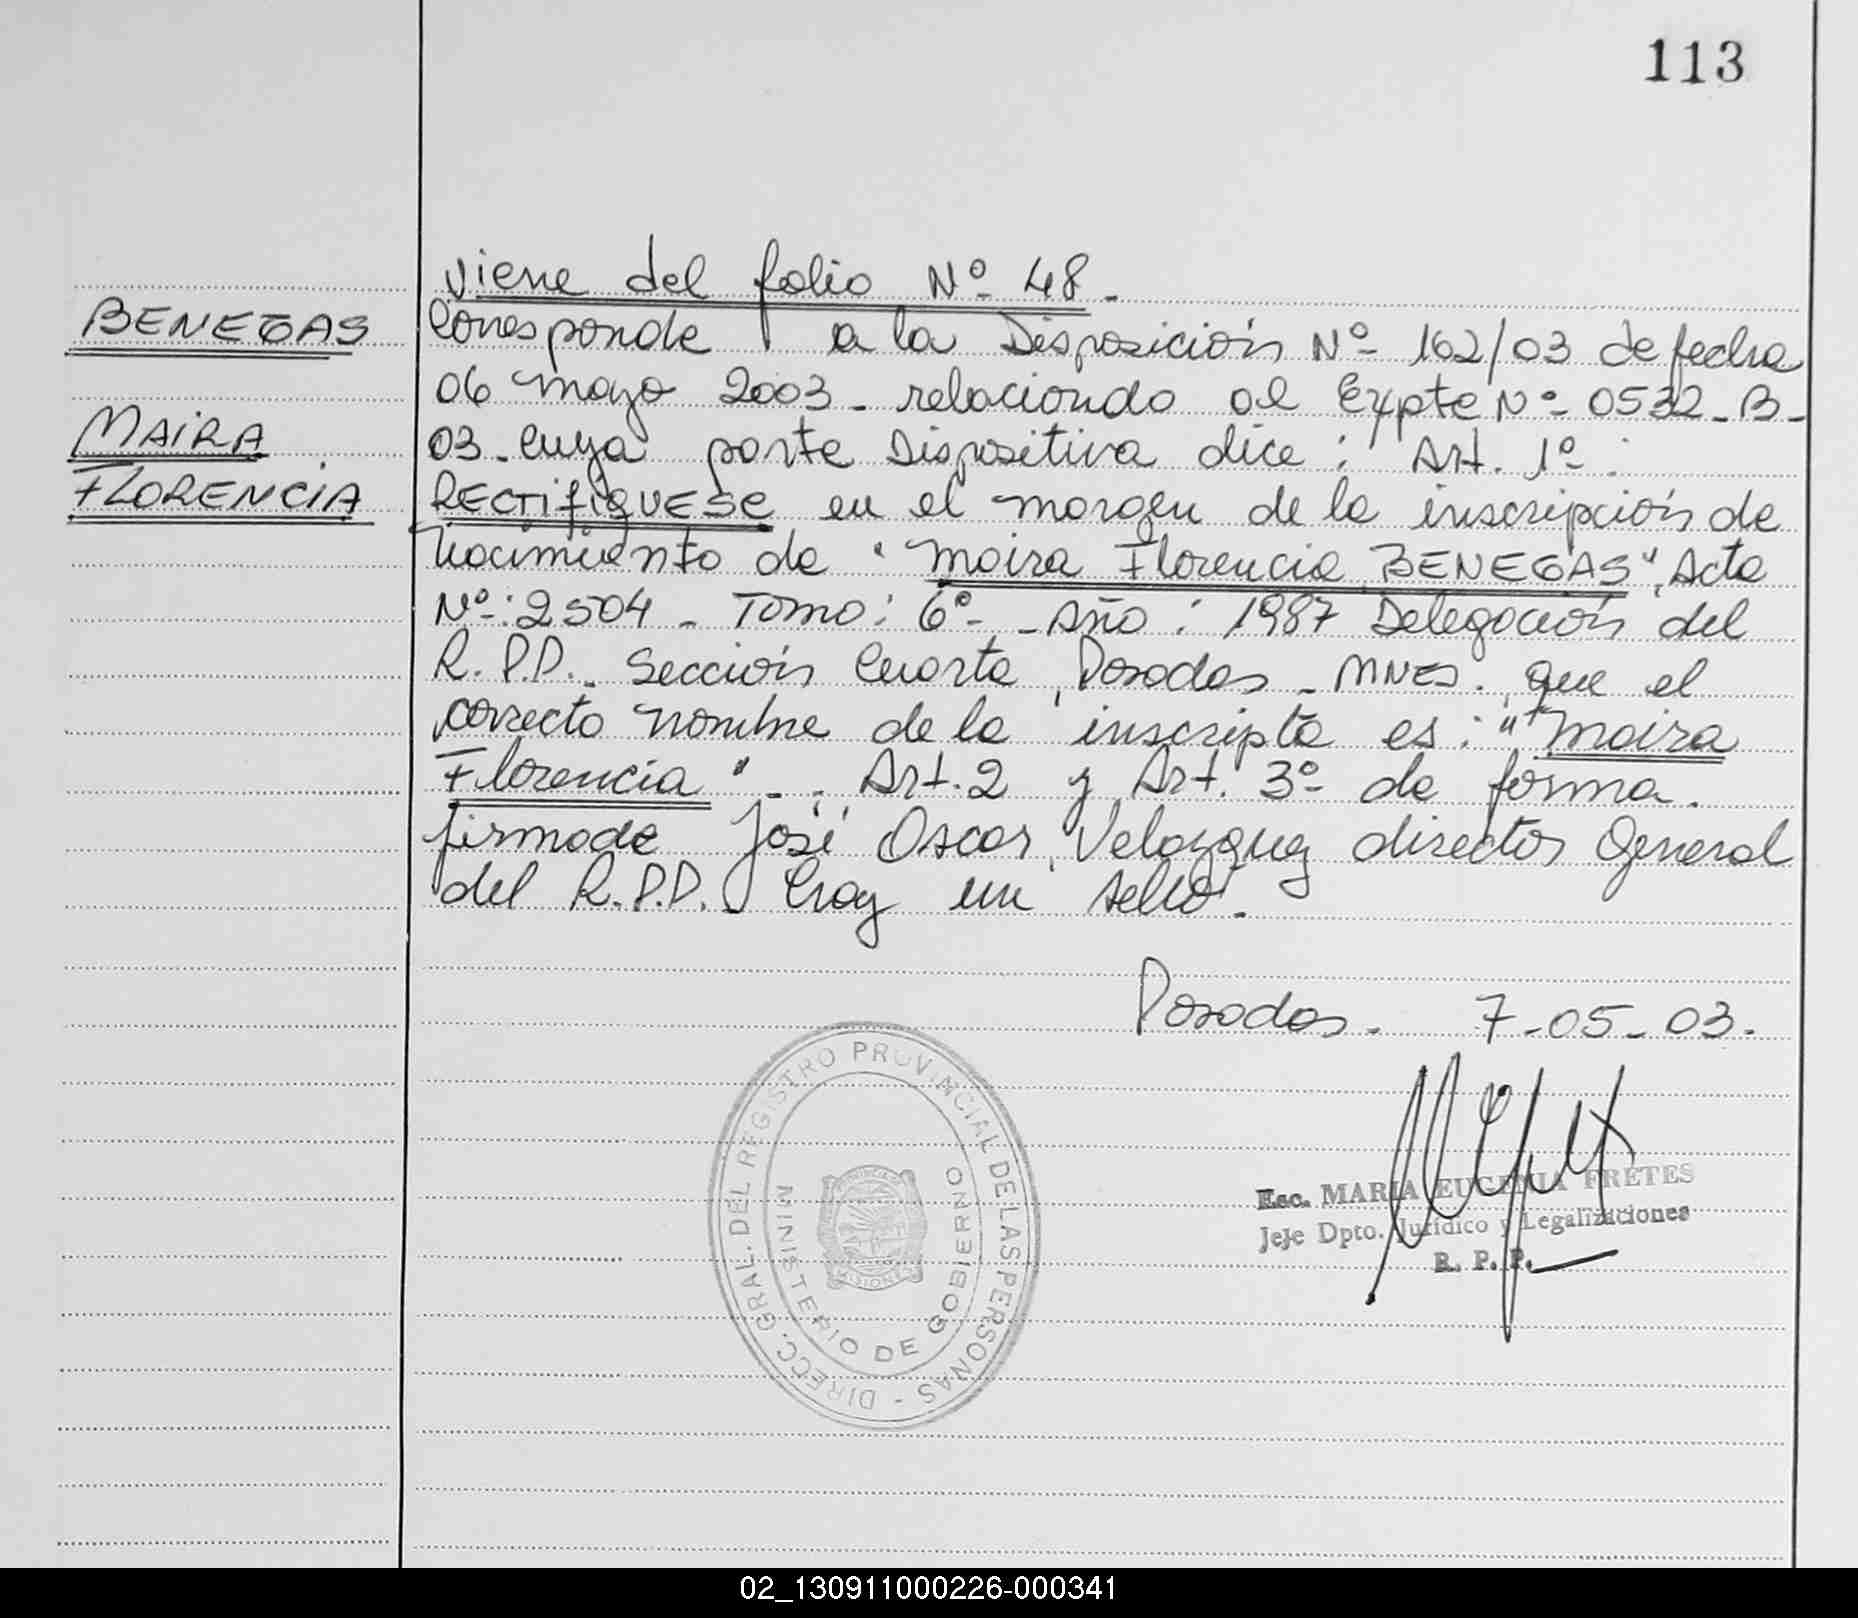 113
Viene del folio Nº 48 -
BENEGAS
Corresponde a la Disposición Nº 162/03 de fecha
06 mayo 2003 - relaciondo al Expte Nº 0532 - B -
MAIRA
03 - cuya parte Dispositiva dice : Art. 1º :
FLORENCIA
RECTIFIQUESE en el margen de la inscripción de
nacimiento de "Maira Florencia BENEGAS", Acta
Nº : 2504 - Tomo : 6º - Año : 1987 Delegación del
R.P.P. - Sección Cuarta, Posadas - MNES. que el
correcto nombre de la inscripta es : "Maira
Florencia" - . Art. 2 y Art. 3º de forma.
firmado José Oscar Velazquez director General
del R.P.P. Cray un sello -
Posadas - 7 - 05 - 03.
DIRECC. GRAL. DEL REGISTRO PROVINCIAL DE LAS PERSONAS -
MINISTERIO DE GOBIERNO
PROVINCIA
MISIONES
Esc. MARIA EUGENIA FRETES
Jefe Dpto. Jurídico y Legalizaciones
R. P. P.
02_130911000226-000341